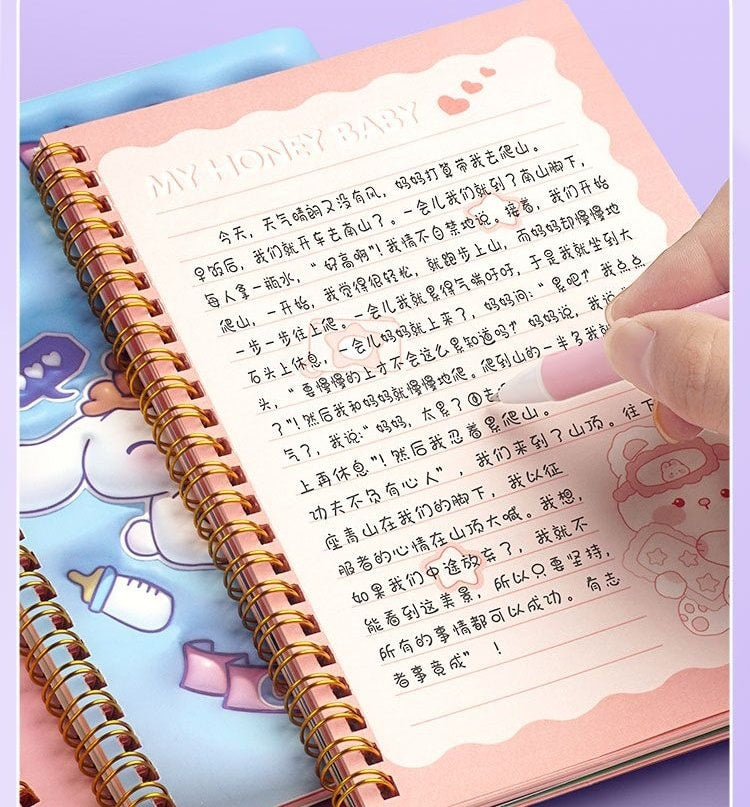 MY HONEY BABY
今天，天气晴朗又没有风，妈妈打算带我去爬山。
早饭后，我们就开车去南山了。一会儿我们就到了南山脚下，
每人拿一瓶水，“好高啊”！我情不自禁地说。接着，我们开始
爬山，一开始，我觉得很轻松，就跑步上山，而妈妈却慢慢地
一步一步往上爬。一会儿我就累得气喘吁吁，于是我就坐到大
石头上休息，一会儿妈妈就上来了，妈妈问：“累吧”我点点
头，“要慢慢的上才不会这么累知道吗”妈妈说，我说
了”！然后我和妈妈就慢慢地爬。爬到山的一半多我就
气了，我说：“妈妈，太累了④去
上再休息”！然后我忍着累爬山。
功夫不负有心人”，我们来到了山顶。往下
座青山在我们的脚下，我以征
服者的心情在山顶大喊。我想，
如果我们中途放弃了，我就不
能看到这美景，所以只要坚持，
所有的事情都可以成功。有志
者事竟成”！